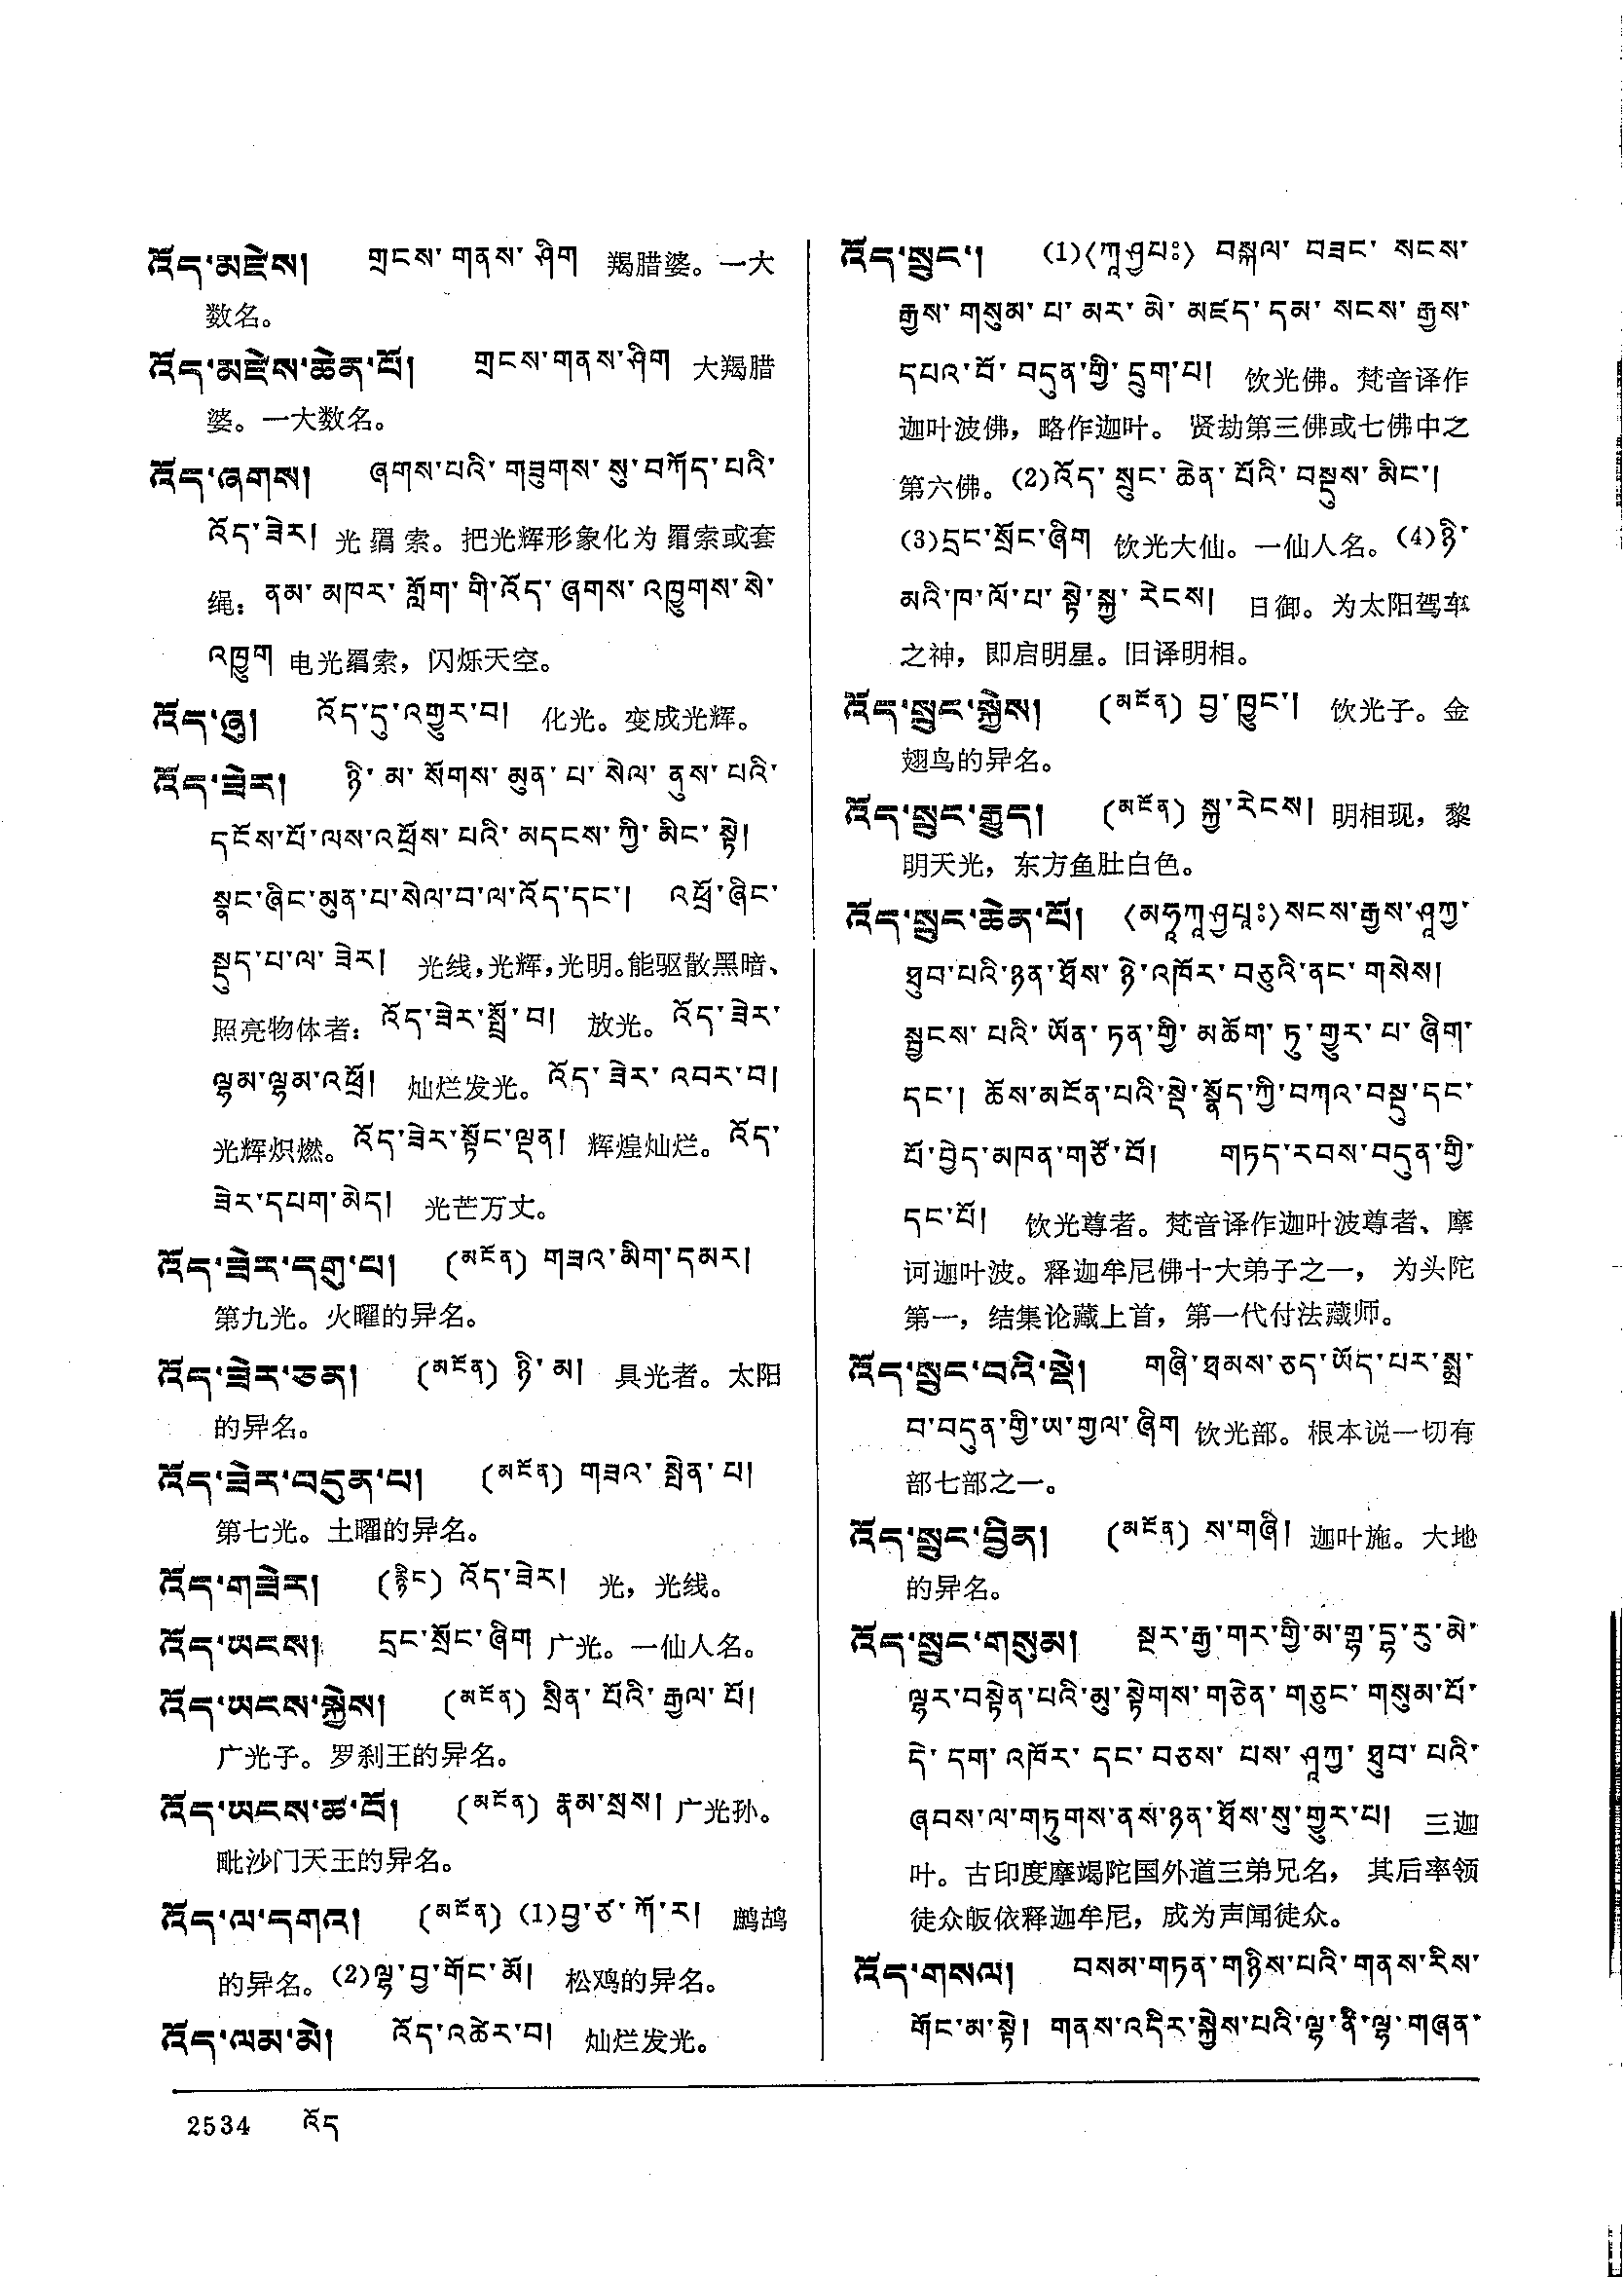 འོད་མཛེས།  གྲངས་གནས་ཤིག 羯腊婆。一大
数名。
འོད་མཛེས་ཆེན་པོ།  གྲངས་གནས་ཤིག 大羯腊
婆。一大数名。
འོད་ཞགས།  ཞགས་པའི་གཟུགས་སུ་བཀོད་པའི་
འོད་ཟེར། 光羂索。把光辉形象化为羂索或套
绳：ནམ་མཁར་གློག་གི་འོད་ཞགས་འཁྱུགས་སེ་
འཁྱུག 电光羂索，闪烁天空。
འོད་ཞུ།  འོད་དུ་འགྱུར་བ། 化光。变成光辉。
འོད་ཟེར།  ཉི་མ་སོགས་མུན་པ་སེལ་ནུས་པའི་
དངོས་པོ་ལས་འཕྲོས་པའི་མདངས་ཀྱི་མིང་སྟེ།
སྣང་ཞིང་མུན་པ་སེལ་བ་ལ་འོད་དང་། འཕྲོ་ཞིང་
སྡུད་པ་ལ་ཟེར། 光线，光辉，光明。能驱散黑暗、
照亮物体者：འོད་ཟེར་སྤྲོ་བ། 放光。འོད་ཟེར་
ལྷམ་ལྷམ་འཕྲོ། 灿烂发光。འོད་ཟེར་འབར་བ།
光辉炽燃。འོད་ཟེར་སྟོང་ལྡན། 辉煌灿烂。འོད་
ཟེར་དཔག་མེད། 光芒万丈。
འོད་ཟེར་དགུ་པ།  (མངོན) གཟའ་མིག་དམར།
第九光。火曜的异名。
འོད་ཟེར་ཅན།  (མངོན) ཉི་མ། 具光者。太阳
的异名。
འོད་ཟེར་བདུན་པ།  (མངོན) གཟའ་སྤེན་པ།
第七光。土曜的异名。
འོད་གཟེར།  (རྙིང) འོད་ཟེར། 光，光线。
འོད་ཡངས།  དྲང་སྲོང་ཞིག 广光。一仙人名。
འོད་ཡངས་སྐྱེས།  (མངོན) སྲིན་པོའི་རྒྱལ་པོ།
广光子。罗刹王的异名。
འོད་ཡངས་ཚ་བོ།  (མངོན) རྣམ་སྲས། 广光孙。
毗沙门天王的异名。
འོད་ལ་དགའ།  (མངོན) (1)བྱ་ཙ་ཀོ་ར། 鹧鸪
的异名。(2)ལྷ་བྱ་གོང་མོ། 松鸡的异名。
འོད་ལམ་མེ།  འོད་འཚེར་བ། 灿烂发光。
འོད་སྲུང་།  (1)〈ཀཱཤྱཔཿ〉 བསྐལ་བཟང་སངས་
རྒྱས་གསུམ་པ་མར་མེ་མཛད་དམ་སངས་རྒྱས་
དཔའ་བོ་བདུན་གྱི་དྲུག་པ། 饮光佛。梵音译作
迦叶波佛，略作迦叶。贤劫第三佛或七佛中之
第六佛。(2)འོད་སྲུང་ཆེན་པོའི་བསྡུས་མིང་།
(3)དྲང་སྲོང་ཞིག 饮光大仙。一仙人名。(4)ཉི་
མའི་ཁ་ལོ་པ་སྟེ་སྐྱ་རེངས། 日御。为太阳驾车
之神，即启明星。旧译明相。
འོད་སྲུང་སྐྱེས།  (མངོན) བྱ་ཁྱུང་། 饮光子。金
翅鸟的异名。
འོད་སྲུང་རྒྱུད།  (མངོན) སྐྱ་རེངས། 明相现，黎
明天光，东方鱼肚白色。
འོད་སྲུང་ཆེན་པོ།  〈མཧཱཀཱཤྱཔཱཿ〉སངས་རྒྱས་ཤཱཀྱ་
ཐུབ་པའི་ཉན་ཐོས་ཉེ་འཁོར་བཅུའི་ནང་གསེས།
སྦྱངས་པའི་ཡོན་ཏན་གྱི་མཆོག་ཏུ་གྱུར་པ་ཞིག་
དང་། ཆོས་མངོན་པའི་སྡེ་སྣོད་ཀྱི་བཀའ་བསྡུ་དང་
པོ་བྱེད་མཁན་གཙོ་བོ། གཏད་རབས་བདུན་གྱི་
དང་པོ། 饮光尊者。梵音译作迦叶波尊者、摩
诃迦叶波。释迦牟尼佛十大弟子之一，为头陀
第一，结集论藏上首，第一代付法藏师。
འོད་སྲུང་བའི་སྡེ།  གཞི་ཐམས་ཅད་ཡོད་པར་སྨྲ་
བ་བདུན་གྱི་ཡ་གྱལ་ཞིག 饮光部。根本说一切有
部七部之一。
འོད་སྲུང་བྱིན།  (མངོན) ས་གཞི། 迦叶施。大地
的异名。
འོད་སྲུང་གསུམ།  སྔར་རྒྱ་གར་གྱི་མ་གྷ་དྷ་རུ་མེ་
ལྷར་བསྟེན་པའི་མུ་སྟེགས་གཅེན་གཅུང་གསུམ་པོ་
དེ་དག་འཁོར་དང་བཅས་པས་ཤཱཀྱ་ཐུབ་པའི་
ཞབས་ལ་གཏུགས་ནས་ཉན་ཐོས་སུ་གྱུར་པ། 三迦
叶。古印度摩竭陀国外道三弟兄名，其后率领
徒众皈依释迦牟尼，成为声闻徒众。
འོད་གསལ།  བསམ་གཏན་གཉིས་པའི་གནས་རིས་
གོང་མ་སྟེ། གནས་འདིར་སྐྱེས་པའི་ལྷ་ནི་ལྷ་གཞན་
2534 འོད